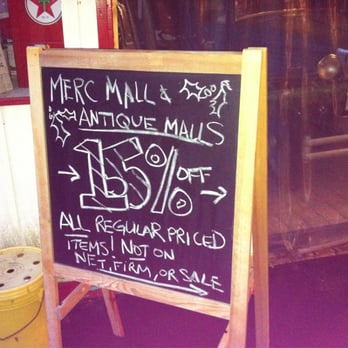 MERC MALL &
ANTIQUE MALLS
15% OFF
ALL REGULAR PRICED
ITEMS! NOT ON
NET, FIRM, OR SALE